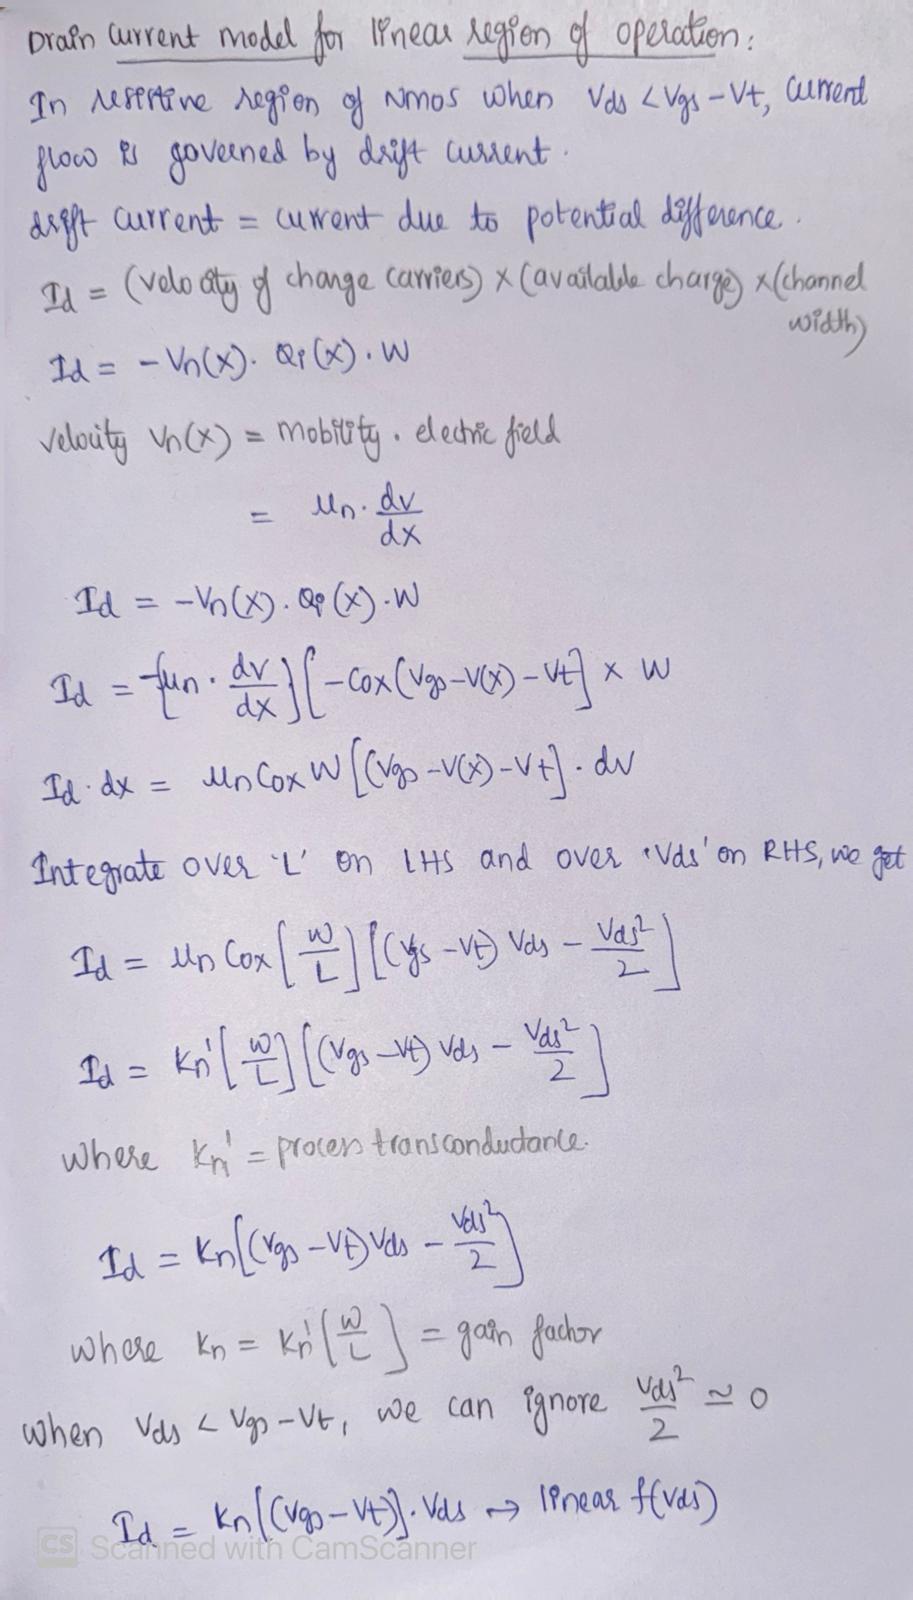 Drain current model for linear region of operation:
In resistive region of Nmos when Vds < Vgs - Vt, current
flow is governed by drift current.
drift current = current due to potential difference.
Id = (velocity of change carriers) x (available charge) x (channel
width)
Id = - Vn(x). Qi(x). W
velocity Vn(x) = mobility . electric field
= μn. dv/dx
Id = -Vn(x). Qi(x).W
Id = -{μn. dv/dx}[-Cox(Vgs-V(x)-Vt] x W
Id. dx = μn Cox W [(Vgs -V(x)-Vt]. dv
Integrate over 'L' on LHS and over 'Vds' on RHS, we get
Id = μn Cox [W/L] [(Vgs -Vt) Vds - Vds²/2]
Id = Kn' [W/L] [(Vgs -Vt) Vds - Vds²/2]
where Kn' = process transconductance.
Id = Kn[(Vgs -Vt)Vds - Vds²/2]
where Kn = Kn' [W/L] = gain factor
when Vds < Vgs-Vt, we can ignore Vds²/2 ≃ 0
Id = Kn[(Vgs-Vt)]. Vds → linear f(Vds)
CS Scanned with CamScanner